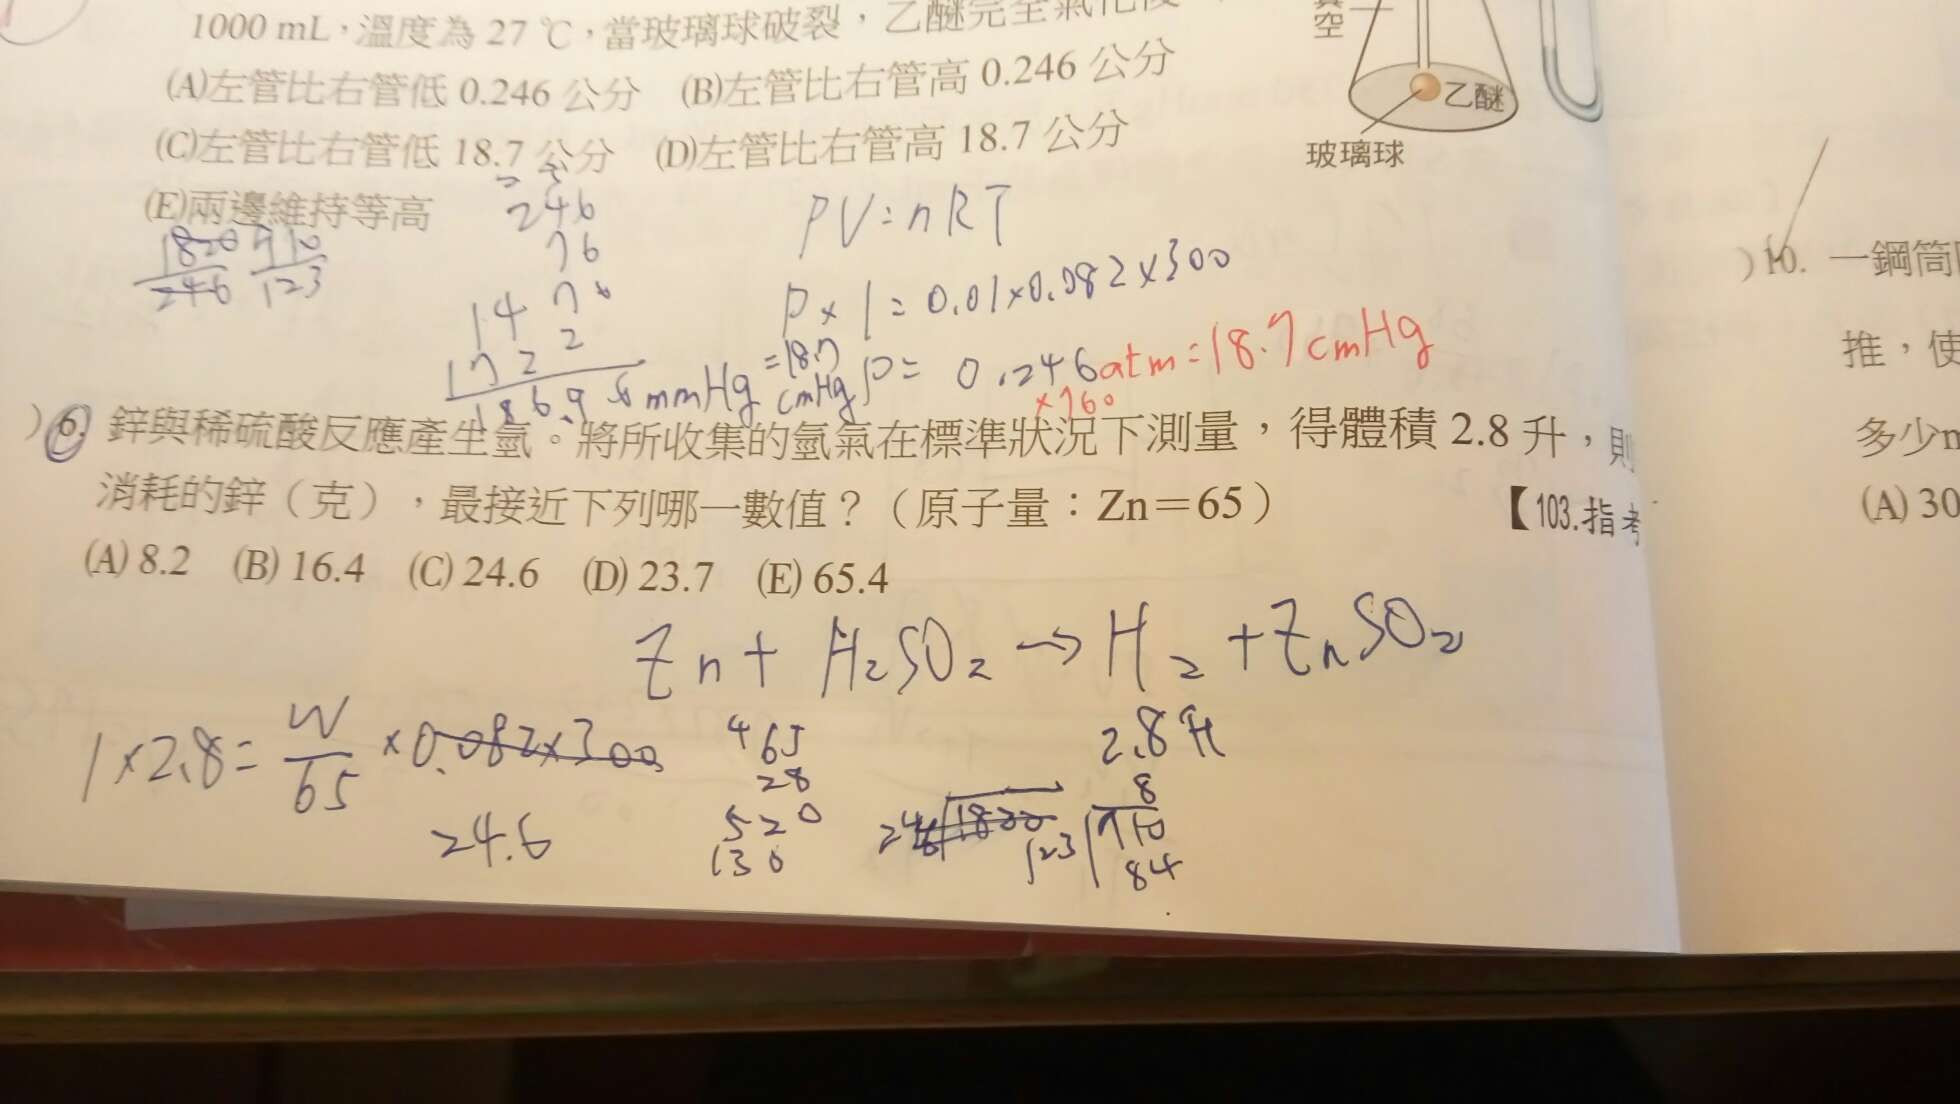 1000 mL，溫度為 27 ℃，當玻璃球破裂，乙醚完全氣化後
(A)左管比右管低 0.246 公分 (B)左管比右管高 0.246 公分
(C)左管比右管低 18.7 公分 (D)左管比右管高 18.7 公分
(E)兩邊維持等高
真空
乙醚
玻璃球
1820 910
246 123
246
76
PV=nRT
P×1=0.01×0.082×300
1476
1722
186.96 mmHg =18.7 cmHg
P= 0.246 atm=18.7 cmHg
×760
) 6. 鋅與稀硫酸反應產生氫。將所收集的氫氣在標準狀況下測量，得體積 2.8 升，則
消耗的鋅（克），最接近下列哪一數值？（原子量：Zn＝65）
【103.指考
(A) 8.2 (B) 16.4 (C) 24.6 (D) 23.7 (E) 65.4
Zn + H₂SO₂ → H₂ + ZnSO₂
2.8升
1×2.8= W/65 ×0.082×300
24.6
465
28
520
130
8
123 910
84
) 10. 一鋼筒
推，使
多少
(A) 30